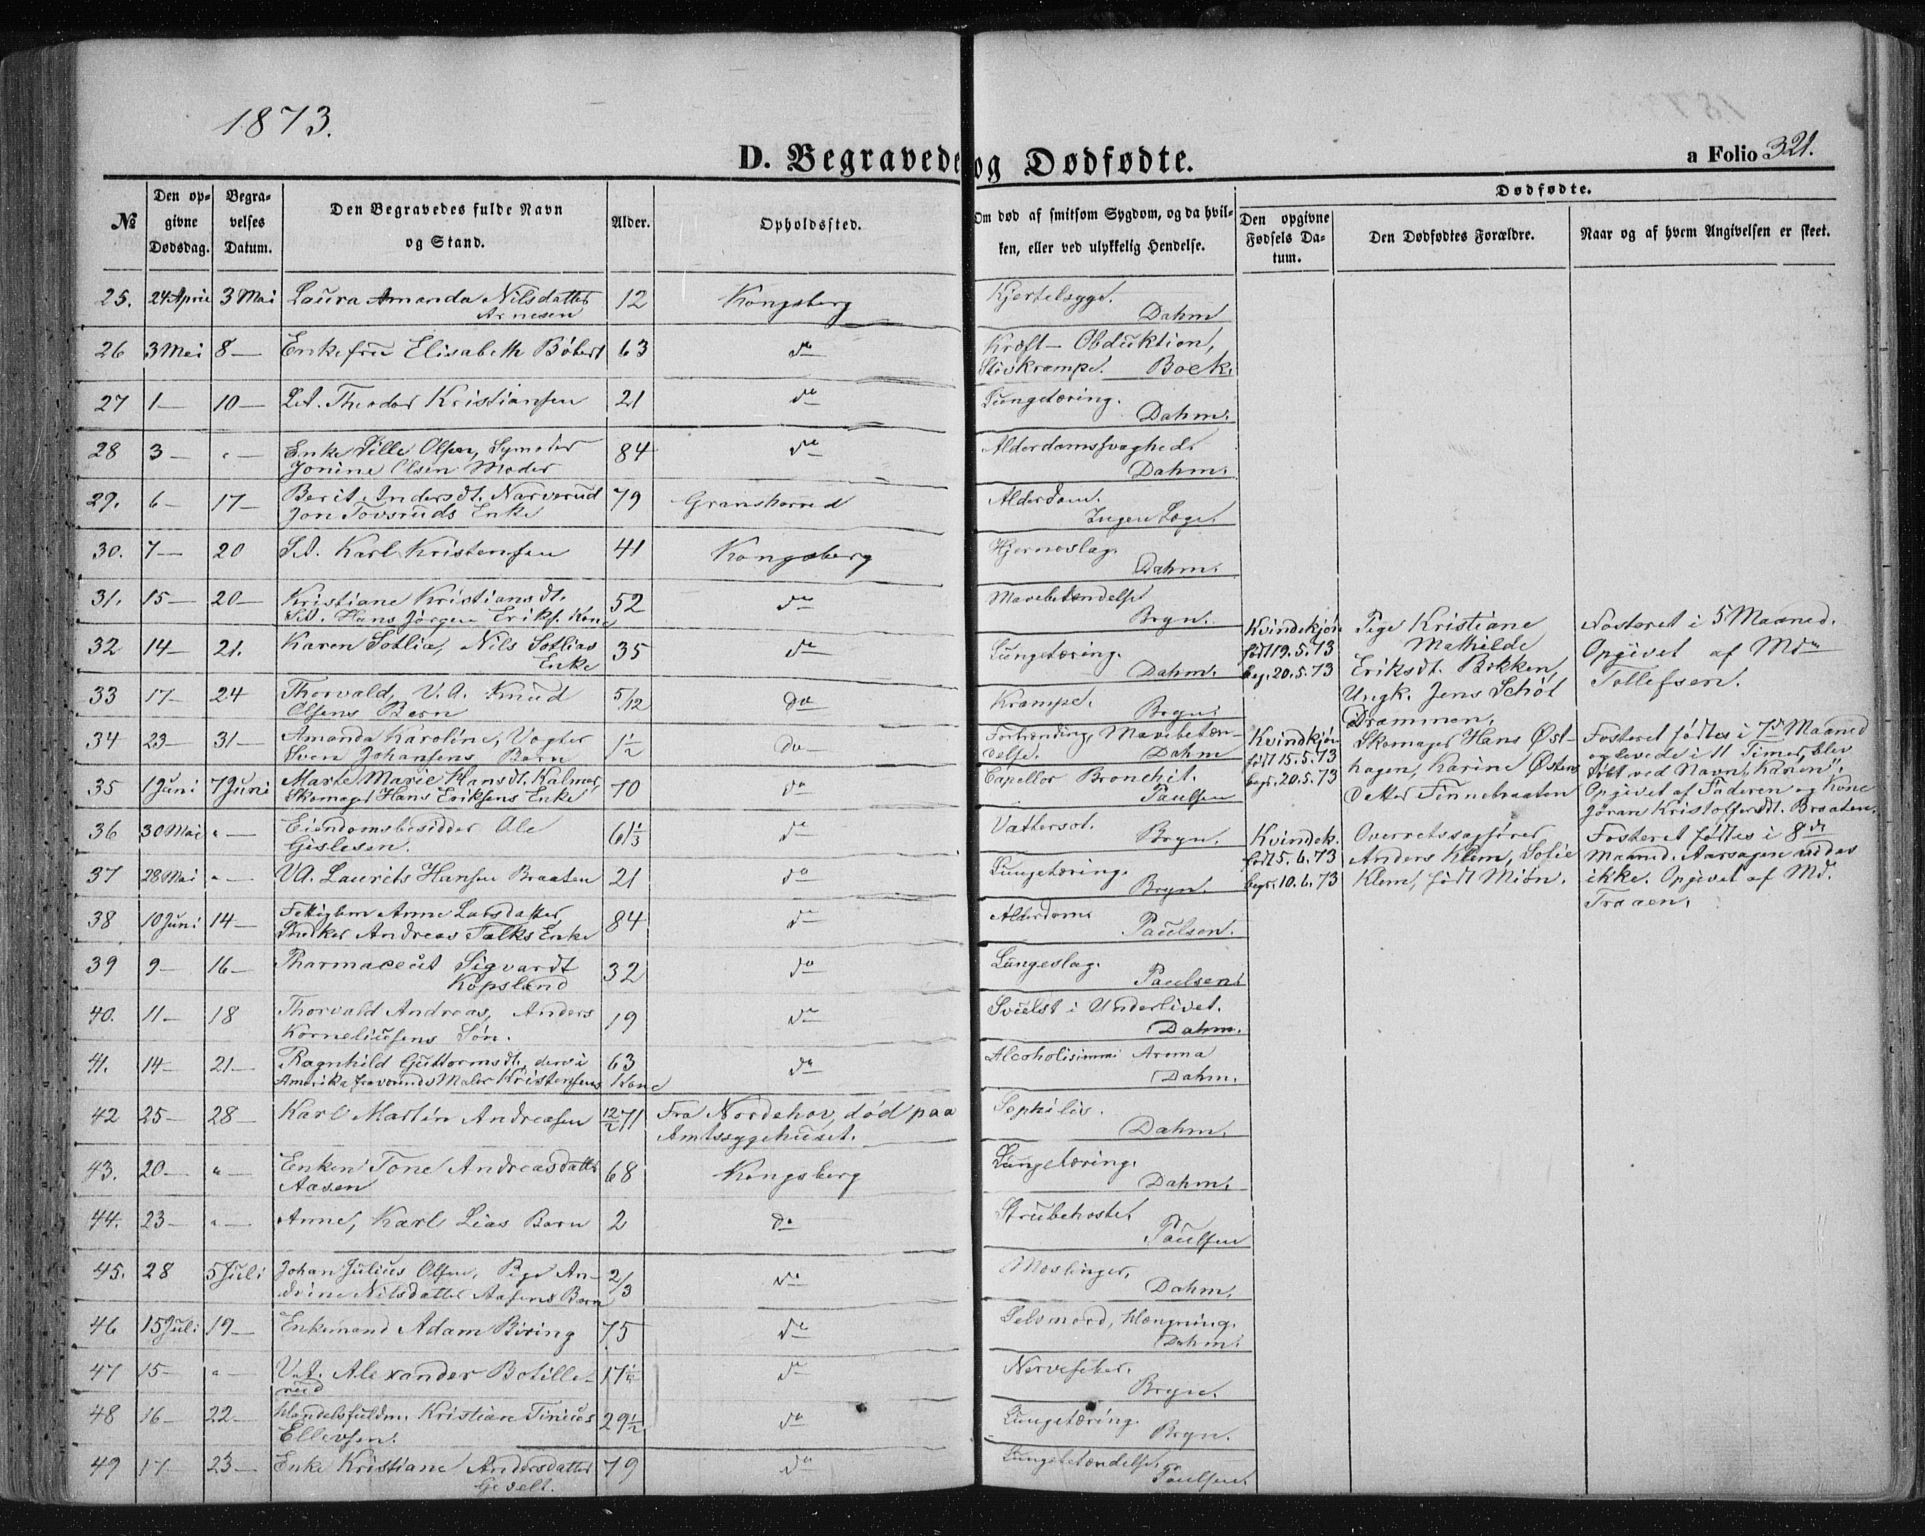 1873.
D. Begravede og Dødfødte.
a Folio 321.
№
Den opgivne Dødsdag.
Begravelses Datum.
Den Begravedes fulde Navn og Stand.
Alder.
Opholdssted.
Om død af smitsom Sygdom, og da hvilken, eller ved ulykkelig Hendelse.
Dødfødte.
Den opgivne Fødsels Datum.
Den Dødfødtes Forældre.
Naar og af hvem Angivelsen er skeet.
25. 24 April 3 Mai Laura Amanda Nilsdatter 12 Kongsberg Kjertelsyge.
Arnesen Dahm
26 3 Mai 8 — Enkefru Elisabeth Böbert 63 do Kræft – Obduktion,
Stivkrampe. Boek.
27 1 — 10 — S.A. Theodor Kristiansen 21 do Lungetæring.
Dahm.
28 3 — " — Enke Pille Olsen, Symoder 84 do Alderdomssvaghed.
Jonine Olsen Moder Dahm.
29. 6 — 17 — Berit Andersdt. Narverud 79 Granskerud Alderdom.
Jon Tovsruds Enke Ingen Læge.
30. 7 — 20 S.A. Karl Kristensen 41 Kongsberg Hjerneslag.
Dahm.
31. 15 — 20 — Kristiane Kristiansdt. 52 do Mavebetændelse
S.A. Hans Jörgen Eriks. Kone Bryn.
32 14 — 21. Karen Sotlia, Nils Sotlias 35 do Lungetæring.
Enke Dahm.
33 17 — 24 Thorvald, V.A. Knud 5/12 do Krampe.
Olsens Barn Bryn.
34 23 — 31 — Amanda Karoline, Vogter 1½ do Forbrænding, Mavebetæn-
Sven Johansens Barn delse. Dahm
35 1 Juni 7 Juni Marte Marie Hansdt. Kalmoe, 70 do Capellær Bronchit.
Skomager Hans Eriksens Enke Paulsen
36 30 Mai " — Eiendomsbesidder Ole 61⅓ do Vattersot.
Gislesen. Bryn.
37 28 Mai " — V.A. Laurits Hansen Braaten 21 do Lungetæring.
Bryn.
38 10 Juni 14 — Fattiglem Anne Larsdatter, 84 do Alderdom.
Snedker Andreas Falks Enke Paulsen.
39 9 — 16 — Pharmaceut Sigvardt 32 do Lungeslag.
Kopsland Paulsen.
40. 11 — 18 Thorvald Andreas, Anders 19 do Svulst i Underlivet.
Korneliusens Søn. Dahm.
41. 14 — 21 — Ragnhild Guttormsdt., den i 63 do Alcoholisimmi Aroma
Amerika fraværende Maler Kristensens Kone Dahm.
42 25 — 28 — Karl Martin Andreasen Fra Norderhov, død paa Sephilis.
Amtssygehuset. Dahm.
43. 20 — " Enken Tone Andreasdatter 68 Kongsberg Lungetæring.
Aasen Dahm.
44. 23 — " — Anne, Karl Lias Barn 2 do Strubehoste.
Paulsen
45. 28 5 Juli Johan Julius Olsen, Pige An- 2/3 do Meslinger.
drine Nilsdatter Aasens Barn Dahm.
46 15 Juli 19 — Enkemand Adam Biring 75 do Selvmord, Hængning.
Dahm.
47 15 — " — V.A. Alexander Botille- 17¼ do Nervefeber.
rud Bryn.
48 16 — 22 — Handelsfuldm. Kristian Tinius 29½ do Lungetæring.
Ellevsen. Bryn.
49 17 — 23 — Enke Kristiane Andersdatter 79 do Lungebetændelse
Gevelt. Paulsen.
Kvindekjøn
født 19.5.73
beg. 20.5.73
Pige Kristiane
Mathilde
Eriksdt. Bakken,
Ungk. Jens Schøt
Drammen.
Fosteret i 5 Maaned.
Opgivet af Mdm
Tollefsen.
Kvindkjøn
født 15.5.73
begr. 20.5.73
Skomager Hans Øst-
hagen, Karine Østens
datter Finnebraaten
Fosteret fødtes i 7d Maaned
og levede i 11 Timer, blev
døbt ved Navn "Karen".
Opgivet af Faderen og Kone
Jøran Kristoffersdt. Braaten.
Kvindek.
født 5.6.73
begr. 10.6.73
Overretssagfører
Anders Klem, Sofie
Klem, født Miøn.
Fosteret fødtes i 8de
Maaned. Aarsagen vides
ikke. Opgivet af Md.
Traaen.